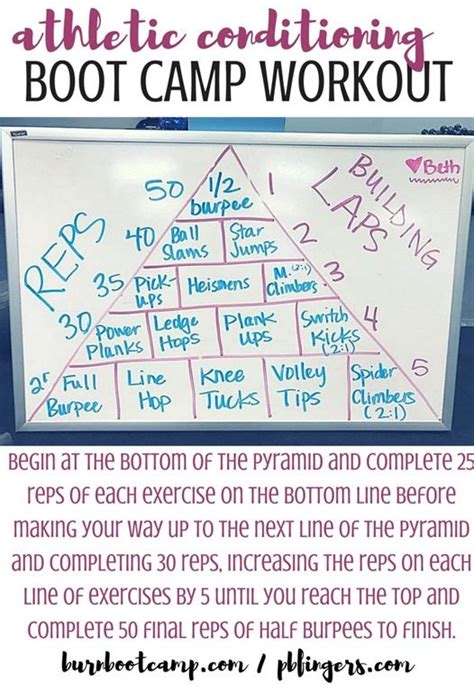 athletic conditioning
BOOT CAMP WORKOUT
♥Beth
BUILDING
LAPS
REPS
50 1/2 burpee 1
40 Ball Slams Star Jumps 2
35 Pick-ups Heismens M. (2:1) Climbers 3
30 Power Planks Ledge Hops Plank ups Switch Kicks (2:1) 4
25 Full Burpee Line Hop Knee Tucks Volley Tips Spider Climbers (2:1) 5
BEGIN AT THE BOTTOM OF THE PYRAMID AND COMPLETE 25
REPS OF EACH EXERCISE ON THE BOTTOM LINE BEFORE
MAKING YOUR WAY UP TO THE NEXT LINE OF THE PYRAMID
AND COMPLETING 30 REPS, INCREASING THE REPS ON EACH
LINE OF EXERCISES BY 5 UNTIL YOU REACH THE TOP AND
COMPLETE 50 FINAL REPS OF HALF BURPEES TO FINISH.
burnbootcamp.com / pbfingers.com